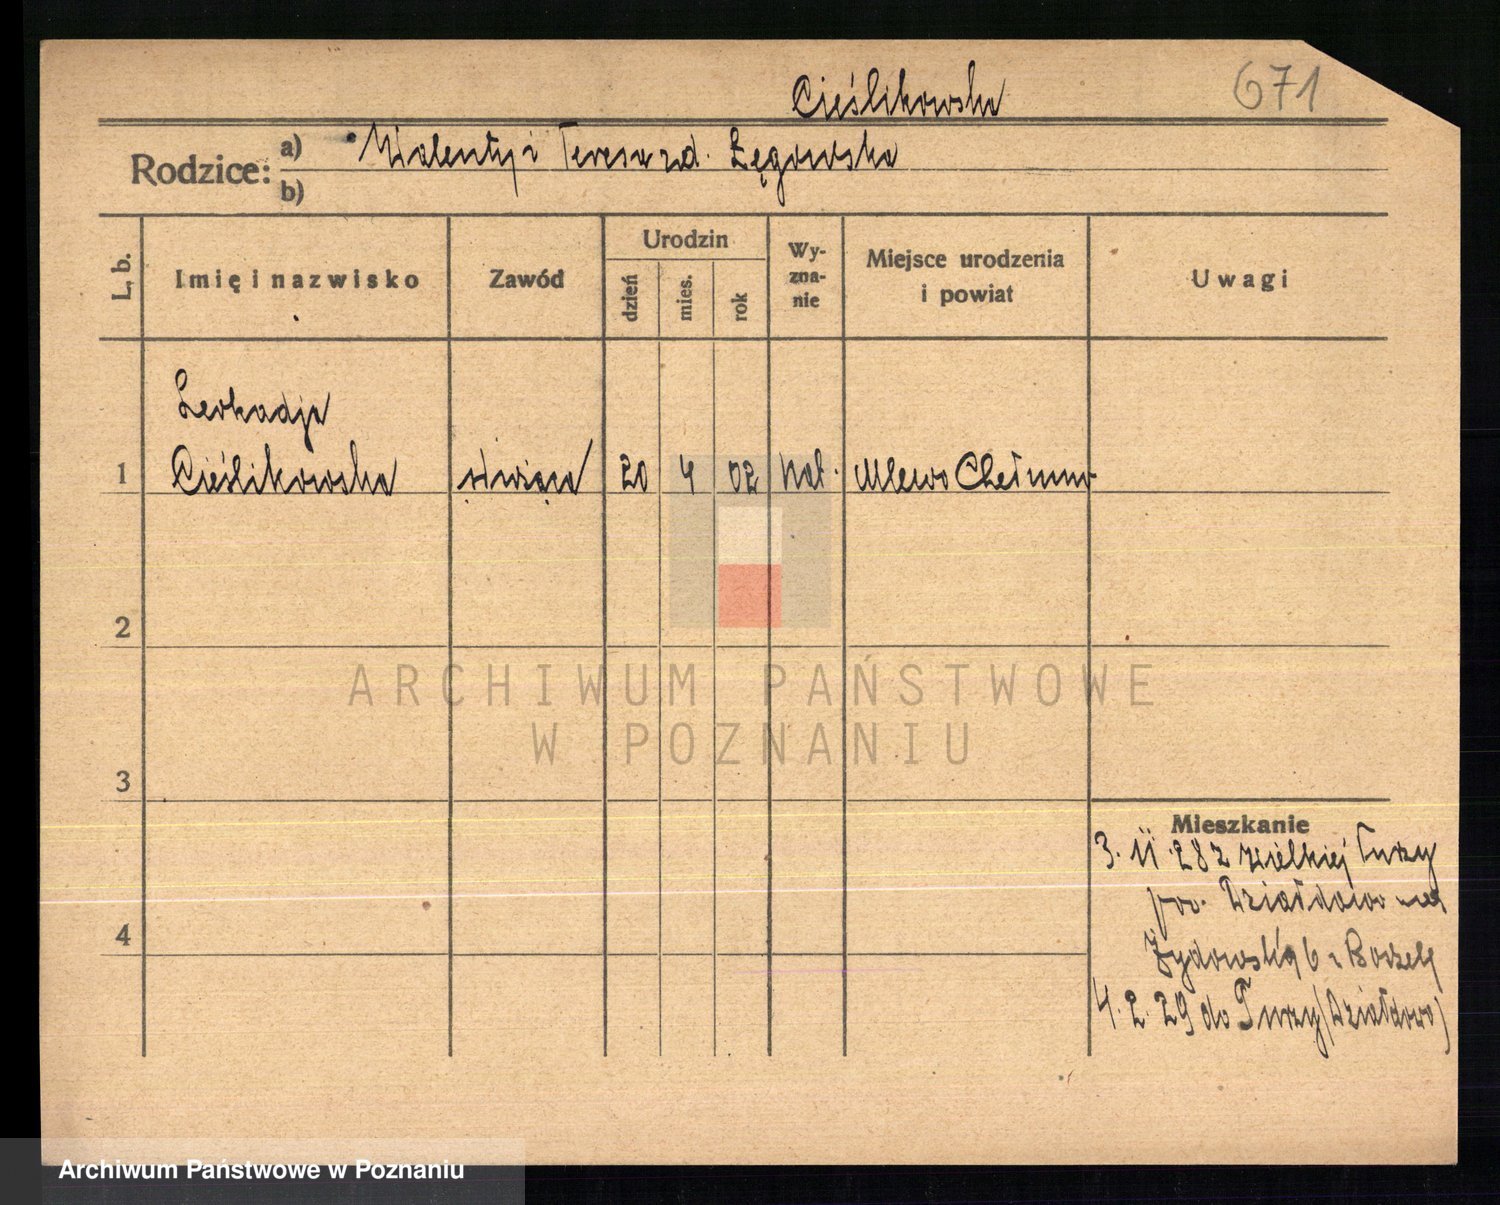 671
Cieślikowska
Rodzice: a) Walenty i Teresa zd. Łęgowska
b)
L. b.
Imię i nazwisko
Zawód
Urodzin
dzień
mies.
rok
Wy-
zna-
nie
Miejsce urodzenia
i powiat
Uwagi
Leokadja
1 Cieślikowska służąca 20 4 02 kat. Mlewo Chełmno
2
3
4
Mieszkanie
3. 11. 28 z Wielkiej Turzy
pow. Działdowo na
Żydowską 6
4. 2. 29 do Turzy (Działdowo)
ARCHIWUM PAŃSTWOWE
W POZNANIU
Archiwum Państwowe w Poznaniu